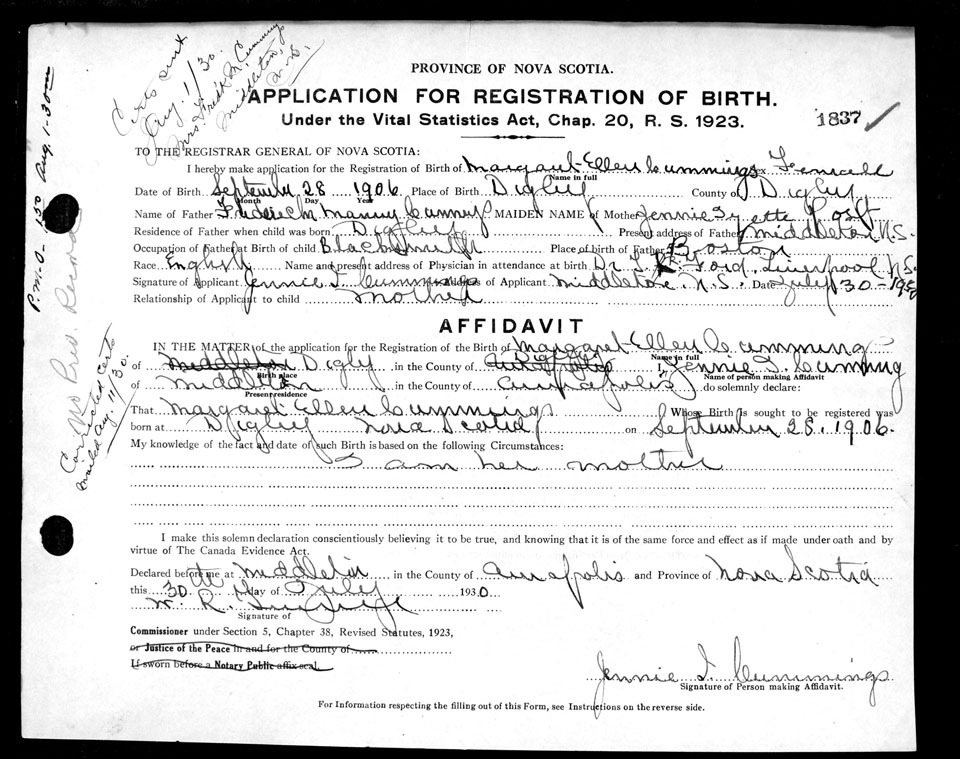 Certs sent
Aug. 1/30.
Mrs Fred M. Cummings
Middleton,
N.S.
P.M.O. 1.50 Aug. 1-30
No Prev. Record
Corrected Cert
mailed Aug. 11/30.
PROVINCE OF NOVA SCOTIA.
APPLICATION FOR REGISTRATION OF BIRTH.
Under the Vital Statistics Act, Chap. 20, R. S. 1923.
1837
TO THE REGISTRAR GENERAL OF NOVA SCOTIA:
I hereby make application for the Registration of Birth of Margaret Ellen Cummings Sex Female
Name in full
Date of Birth September 28 1906 Place of Birth Digby County of Digby
Month Day Year
Name of Father Manny Cummings MAIDEN NAME of Mother Jennie
Residence of Father when child was born Digby Present address of Father Middleton N.S.
Occupation of Father at Birth of child Blacksmith Place of birth of Father Boston
Race English Name and present address of Physician in attendance at birth Dr Ford, Liverpool N.S.
Signature of Applicant Jennie I. Cummings Address of Applicant Middleton, N.S. Date July 30-1930
Relationship of Applicant to child mother
AFFIDAVIT
IN THE MATTER of the application for the Registration of the Birth of Margaret Ellen Cummings
Name in full
of Middleton Digby in the County of Annapolis Digby I, Jennie I. Cummings
Birth place Name of person making Affidavit
of Middleton in the County of Annapolis do solemnly declare:
Present residence
That Margaret Ellen Cummings Whose Birth is sought to be registered was
born at Digby Nova Scotia on September 28, 1906.
My knowledge of the fact and date of such Birth is based on the following Circumstances:
I am her mother
I make this solemn declaration conscientiously believing it to be true, and knowing that it is of the same force and effect as if made under oath and by
virtue of The Canada Evidence Act.
Declared before me at Middleton in the County of Annapolis and Province of Nova Scotia
this 30th day of July 1930
W. R.
Signature of
Commissioner under Section 5, Chapter 38, Revised Statutes, 1923,
or Justice of the Peace in and for the County of
If sworn before a Notary Public affix seal.
Jennie I. Cummings
Signature of Person making Affidavit.
For Information respecting the filling out of this Form, see Instructions on the reverse side.